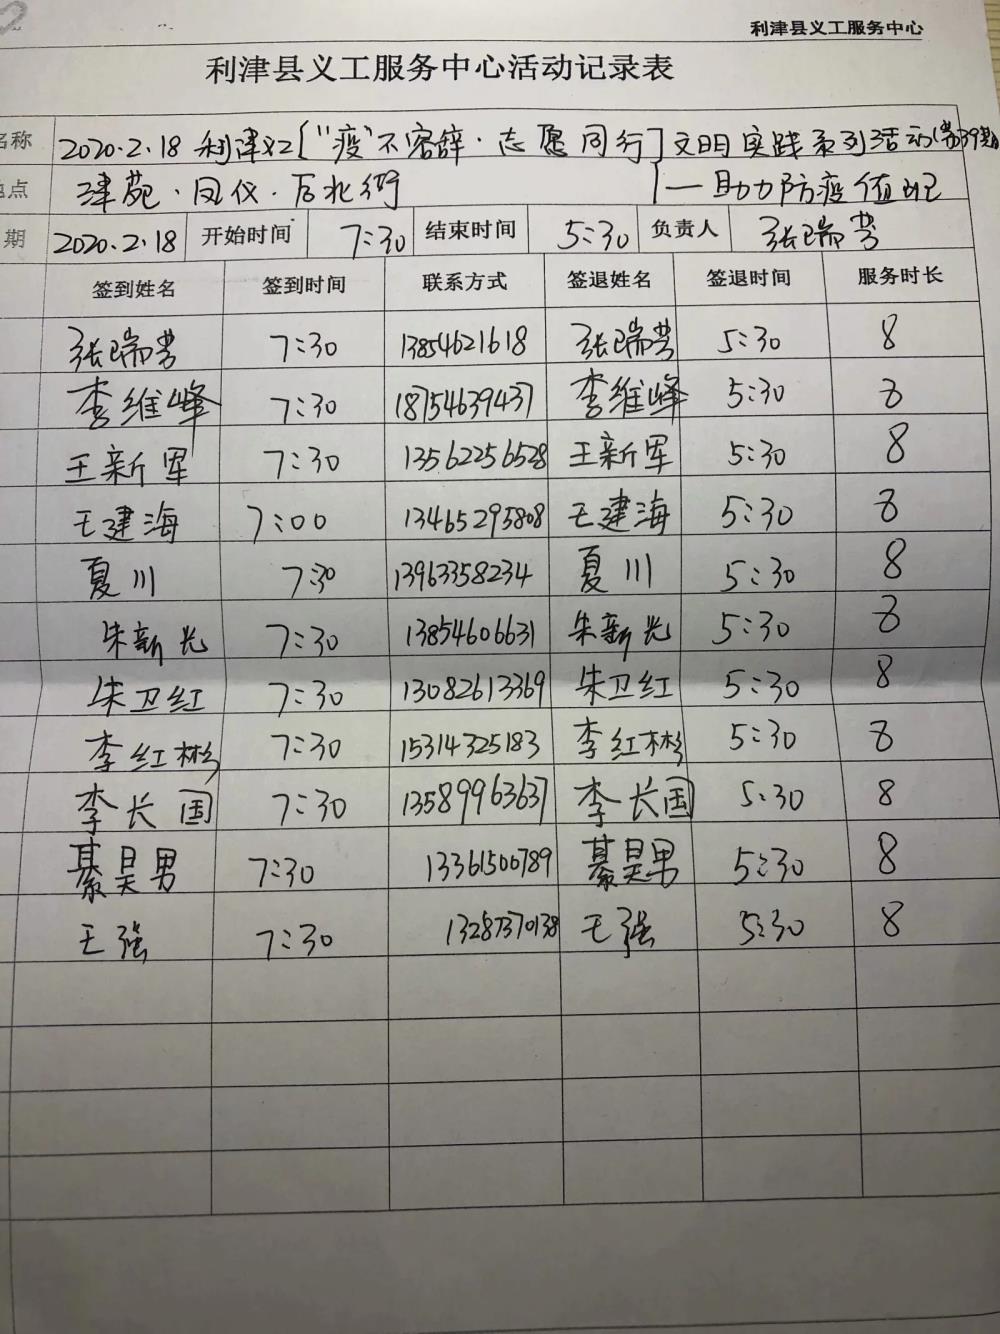 利津县义工服务中心
利津县义工服务中心活动记录表
名称 2020.2.18 利津义工["疫"不容辞·志愿同行]文明实践系列活动(第39期)
地点 津苑·凤仪·后北街 —助力防疫值班
期 2020.2.18 开始时间 7:30 结束时间 5:30 负责人 张瑞芳
签到姓名 签到时间 联系方式 签退姓名 签退时间 服务时长
张瑞芳 7:30 13854621618 张瑞芳 5:30 8
李维峰 7:30 18754639437 李维峰 5:30 8
王新军 7:30 13562256528 王新军 5:30 8
王建海 7:00 13465295808 王建海 5:30 8
夏川 7:30 13963358234 夏川 5:30 8
朱新光 7:30 13854606631 朱新光 5:30 8
朱卫红 7:30 13082613369 朱卫红 5:30 8
李红彬 7:30 15314325183 李红彬 5:30 8
李长国 7:30 13589963637 李长国 5:30 8
綦昊男 7:30 13361500789 綦昊男 5:30 8
王强 7:30 13287370138 王强 5:30 8